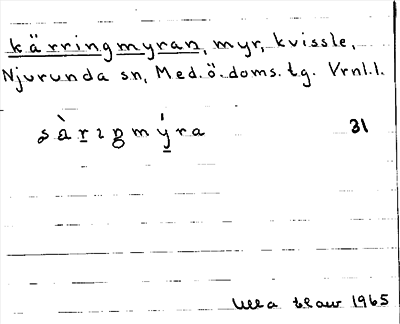 kärringmyran, myr, kvissle,
Njurunda sn, Med. ö. doms. tg. Vrnl.l.
31
Ulla 1965